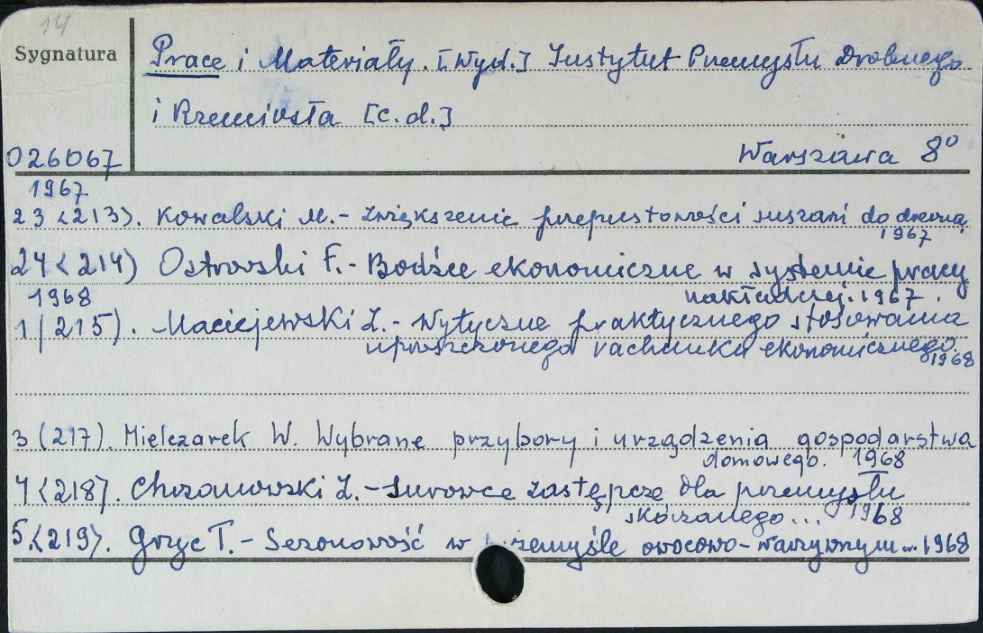 14
Sygnatura
Prace i Materiały. [Wyd.] Instytut Przemysłu Drobnego
i Rzemiosła [c.d.]
026067
Warszawa 8°
1967
23 <213>. Kowalski M. - Zwiększenie przepustowości suszarń do drewna
1967
24 <214) Ostrowski F. - Bodźce ekonomiczne w systemie pracy
nakładczej. 1967.
1968
1 (215). Maciejewski Z. - Wytyczne praktycznego stosowania
uproszczonego rachunku ekonomicznego.
1968
3 (217). Mielczarek W. Wybrane przybory i urządzenia gospodarstwa
domowego. 1968
4 <218>. Chrzanowski Z. - Surowce zastępcze dla przemysłu
skórzanego... 1968
5. <219>. Gryc T. - Sezonowość w przemyśle owocowo-warzywnym... 1968